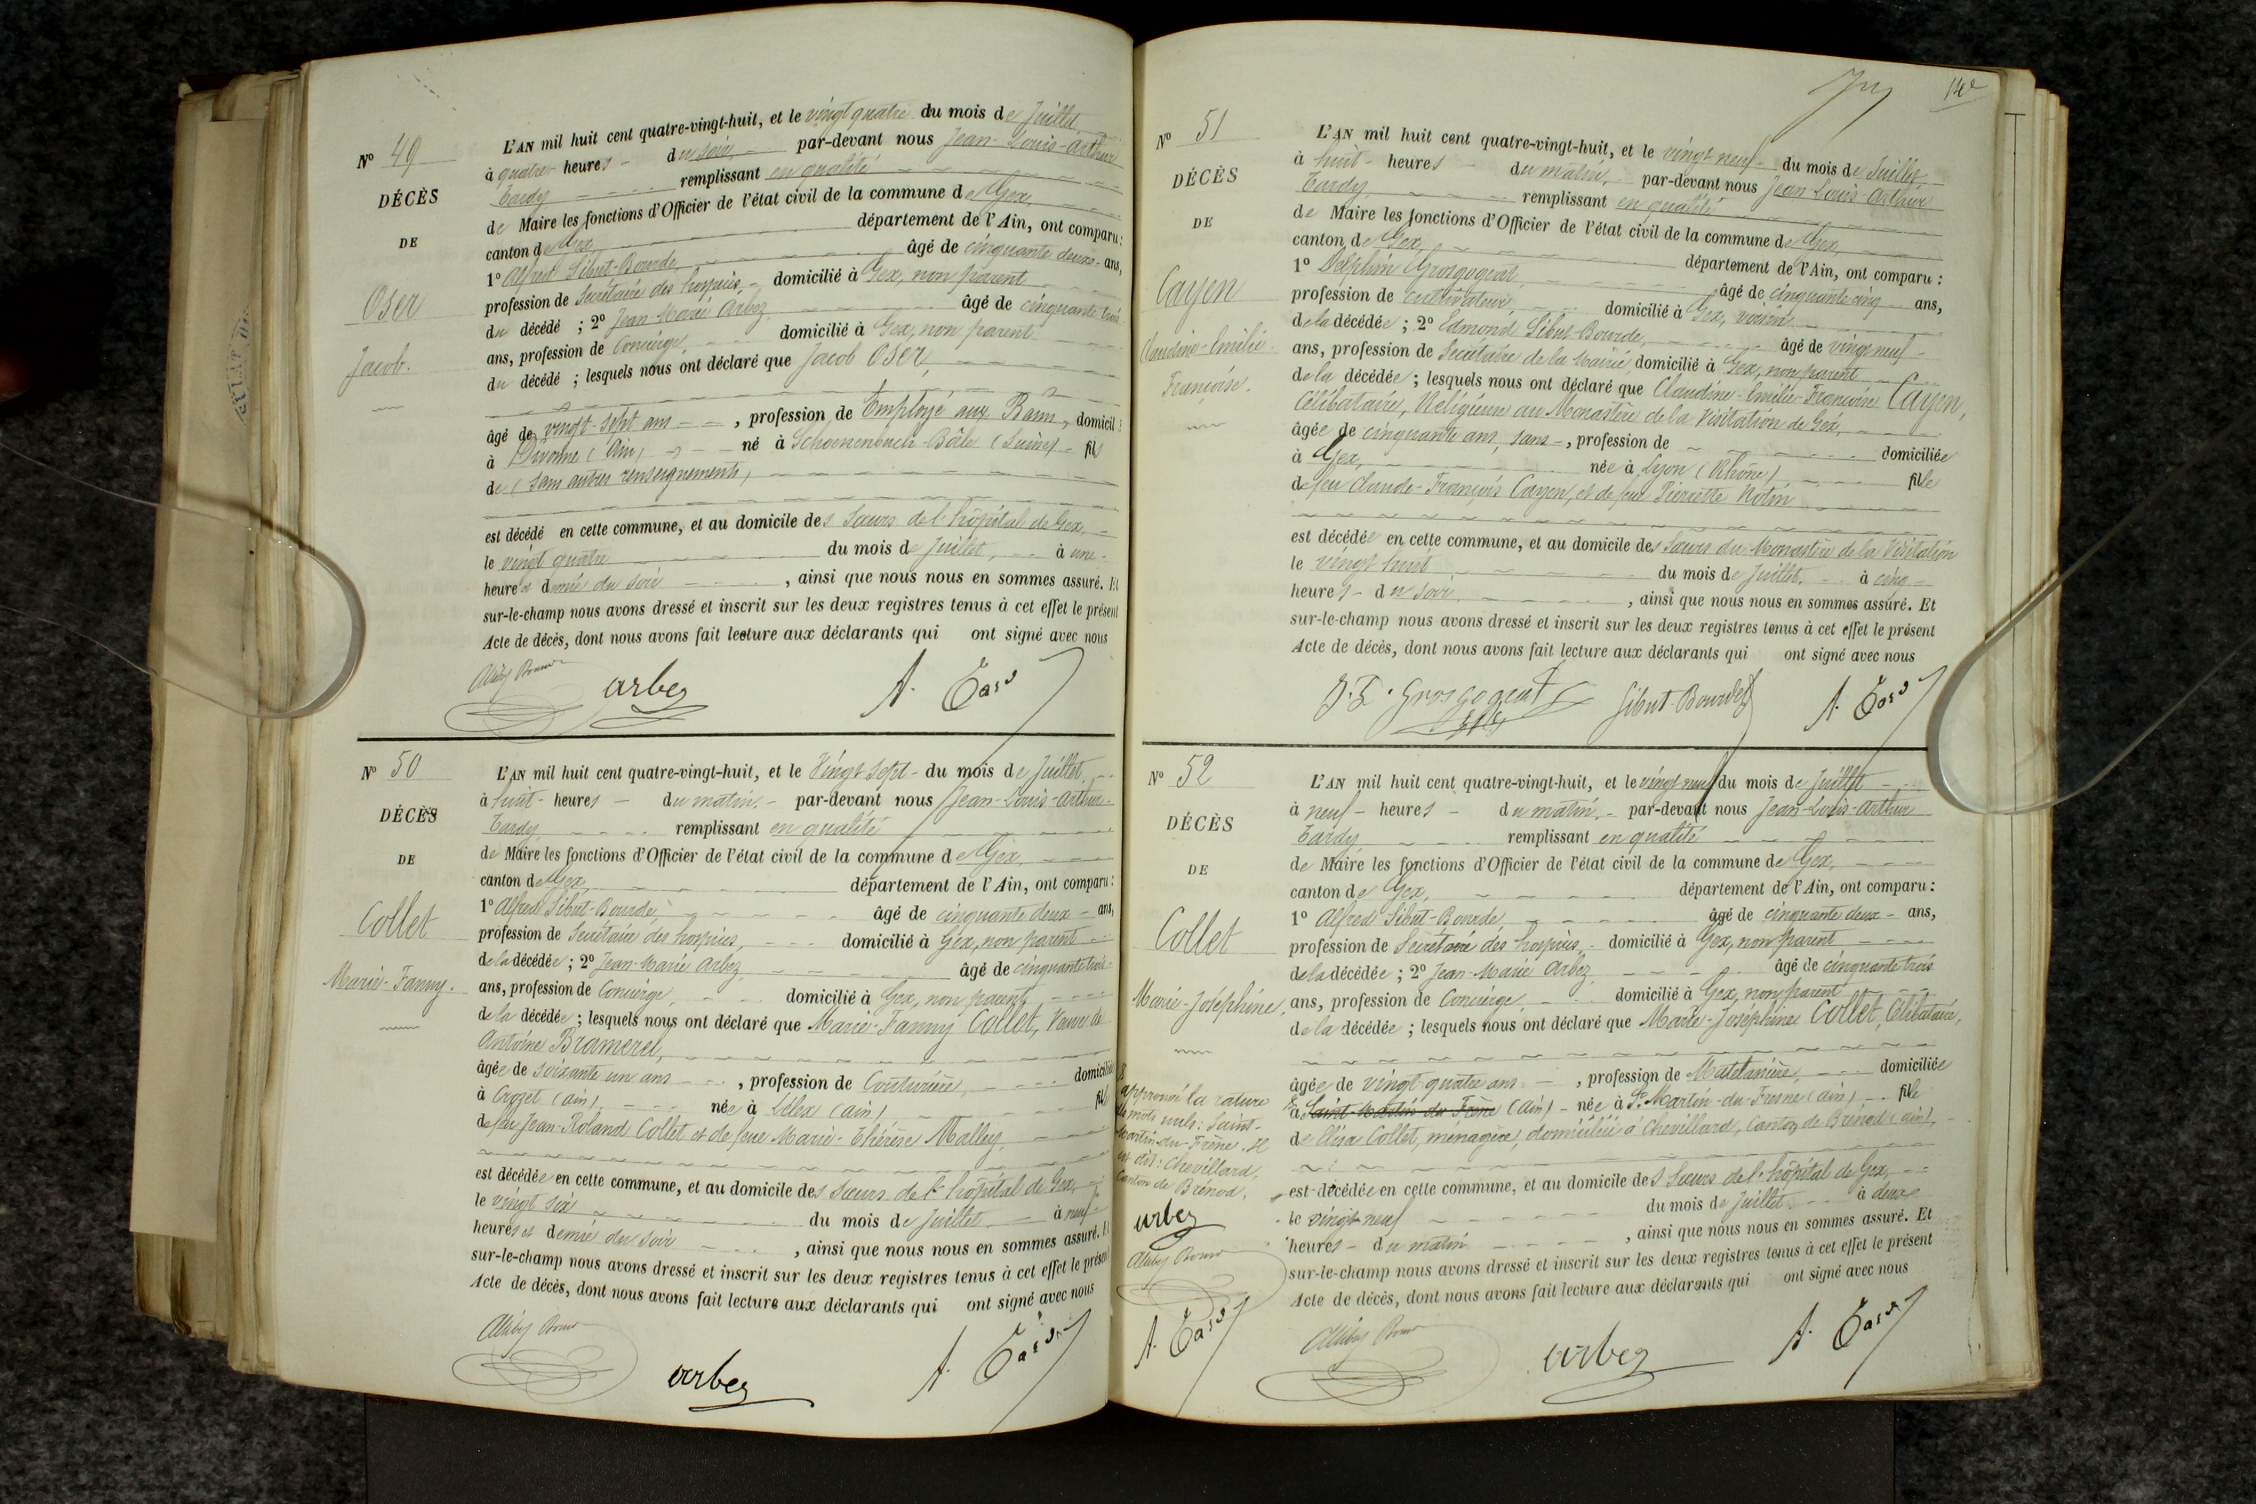 N° 49
DÉCÈS
DE
Oser
Jacob.
L'AN mil huit cent quatre-vingt-huit, et le vingt quatre du mois de Juillet
à quatre heures du soir, par-devant nous Jean-Louis-Arthur
Tardy remplissant en qualité
de Maire les fonctions d'Officier de l'état civil de la commune de Gex,
canton de Gex département de l'Ain, ont comparu :
1° Alfred Sibut-Bourde, âgé de cinquante deux ans,
profession de Secrétaire des hospices, domicilié à Gex, non parent
du décédé ; 2° Jean-Marie Arbez, âgé de cinquante trois
ans, profession de Concierge, domicilié à Gex, non parent
du décédé ; lesquels nous ont déclaré que Jacob Oser,
âgé de vingt-sept ans , profession de Employé aux Bains, domicilié
à Divonne (Ain) né à Schoenenbuch-Bâle (Suisse) fils
de (sans autres renseignements)
est décédé en cette commune, et au domicile des Sœurs de l'hôpital de Gex,
le vingt quatre du mois de Juillet, à une
heure et demie du soir , ainsi que nous nous en sommes assuré. Et
sur-le-champ nous avons dressé et inscrit sur les deux registres tenus à cet effet le présent
Acte de décès, dont nous avons fait lecture aux déclarants qui ont signé avec nous
arbez A. Tardy
N° 50
DÉCÈS
DE
Collet
Marie-Fanny.
L'AN mil huit cent quatre-vingt-huit, et le Vingt sept du mois de Juillet
à huit heures du matin, par-devant nous Jean-Louis-Arthur
Tardy remplissant en qualité
de Maire les fonctions d'Officier de l'état civil de la commune de Gex,
canton de Gex département de l'Ain, ont comparu :
1° Alfred Sibut-Bourde, âgé de cinquante deux ans,
profession de Secrétaire des hospices, domicilié à Gex, non parent
de la décédée ; 2° Jean-Marie Arbez, âgé de cinquante trois
ans, profession de Concierge, domicilié à Gex, non parent
de la décédée ; lesquels nous ont déclaré que Marie-Fanny Collet, Veuve de
Antoine Bramerel,
âgée de soixante un ans , profession de Couturière, domiciliée
à Crozet (ain), née à Lélex (ain) fille
de feu Jean-Roland Collet et de feue Marie-Thérèse Malley,
est décédée en cette commune, et au domicile des Sœurs de l'hôpital de Gex,
le vingt six du mois de Juillet à neuf
heures et demie du soir , ainsi que nous nous en sommes assuré. Et
sur-le-champ nous avons dressé et inscrit sur les deux registres tenus à cet effet le présent
Acte de décès, dont nous avons fait lecture aux déclarants qui ont signé avec nous
arbez A. Tardy
N° 51
DÉCÈS
DE
Cayen
Claudine-Emilie-
Françoise.
L'AN mil huit cent quatre-vingt-huit, et le vingt neuf du mois de Juillet
à huit heures du matin, par-devant nous Jean-Louis-Arthur
Tardy remplissant en qualité
de Maire les fonctions d'Officier de l'état civil de la commune de Gex,
canton de Gex, département de l'Ain, ont comparu :
1° Delphin Grosgogeat, âgé de cinquante cinq ans,
profession de cultivateur, domicilié à Gex, voisin
de la décédée ; 2° Edmond Sibut-Bourde, âgé de vingt neuf
ans, profession de Secrétaire de la Mairie, domicilié à Gex, non parent
de la décédée ; lesquels nous ont déclaré que Claudine-Emilie-Françoise Cayen,
Célibataire, Religieuse au Monastère de la Visitation de Gex,
âgée de cinquante ans, sans , profession de domiciliée
à Gex, née à Lyon (Rhône) fille
de feu Claude-François Cayen, et de feue Pierrette Notin
est décédée en cette commune, et au domicile des Sœurs du Monastère de la Visitation
le vingt huit du mois de Juillet, à cinq
heures du soir , ainsi que nous nous en sommes assuré. Et
sur-le-champ nous avons dressé et inscrit sur les deux registres tenus à cet effet le présent
Acte de décès, dont nous avons fait lecture aux déclarants qui ont signé avec nous
Grosgogeat Sibut-Bourde A. Tardy
N° 52
DÉCÈS
DE
Collet
Marie-Joséphine,
L'AN mil huit cent quatre-vingt-huit, et le vingt neuf du mois de Juillet
à neuf heures du matin, par-devant nous Jean-Louis-Arthur
Tardy remplissant en qualité
de Maire les fonctions d'Officier de l'état civil de la commune de Gex,
canton de Gex, département de l'Ain, ont comparu :
1° Alfred Sibut-Bourde, âgé de cinquante deux ans,
profession de Secrétaire des hospices, domicilié à Gex, non parent
de la décédée ; 2° Jean-Marie Arbez, âgé de cinquante trois
ans, profession de Concierge, domicilié à Gex, non parent
de la décédée ; lesquels nous ont déclaré que Marie-Joséphine Collet, Célibataire,
âgée de vingt quatre ans , profession de Matelassière, domiciliée
à Saint-Martin-du-Frêne (ain) née à St. Martin-du-Fresne (ain) fille
de Elisa Collet, ménagère, domiciliée à Chevillard, Canton de Brénod (ain),
est décédée en cette commune, et au domicile des Sœurs de l'hôpital de Gex,
le vingt neuf du mois de Juillet à deux
heures du matin , ainsi que nous nous en sommes assuré. Et
sur-le-champ nous avons dressé et inscrit sur les deux registres tenus à cet effet le présent
Acte de décès, dont nous avons fait lecture aux déclarants qui ont signé avec nous
arbez A. Tardy
approuvé la rature
mots nuls : Saint-
Martin-du-Frêne. Il
est dit : Chevillard,
Canton de Brénod.
arbez
A. Tardy